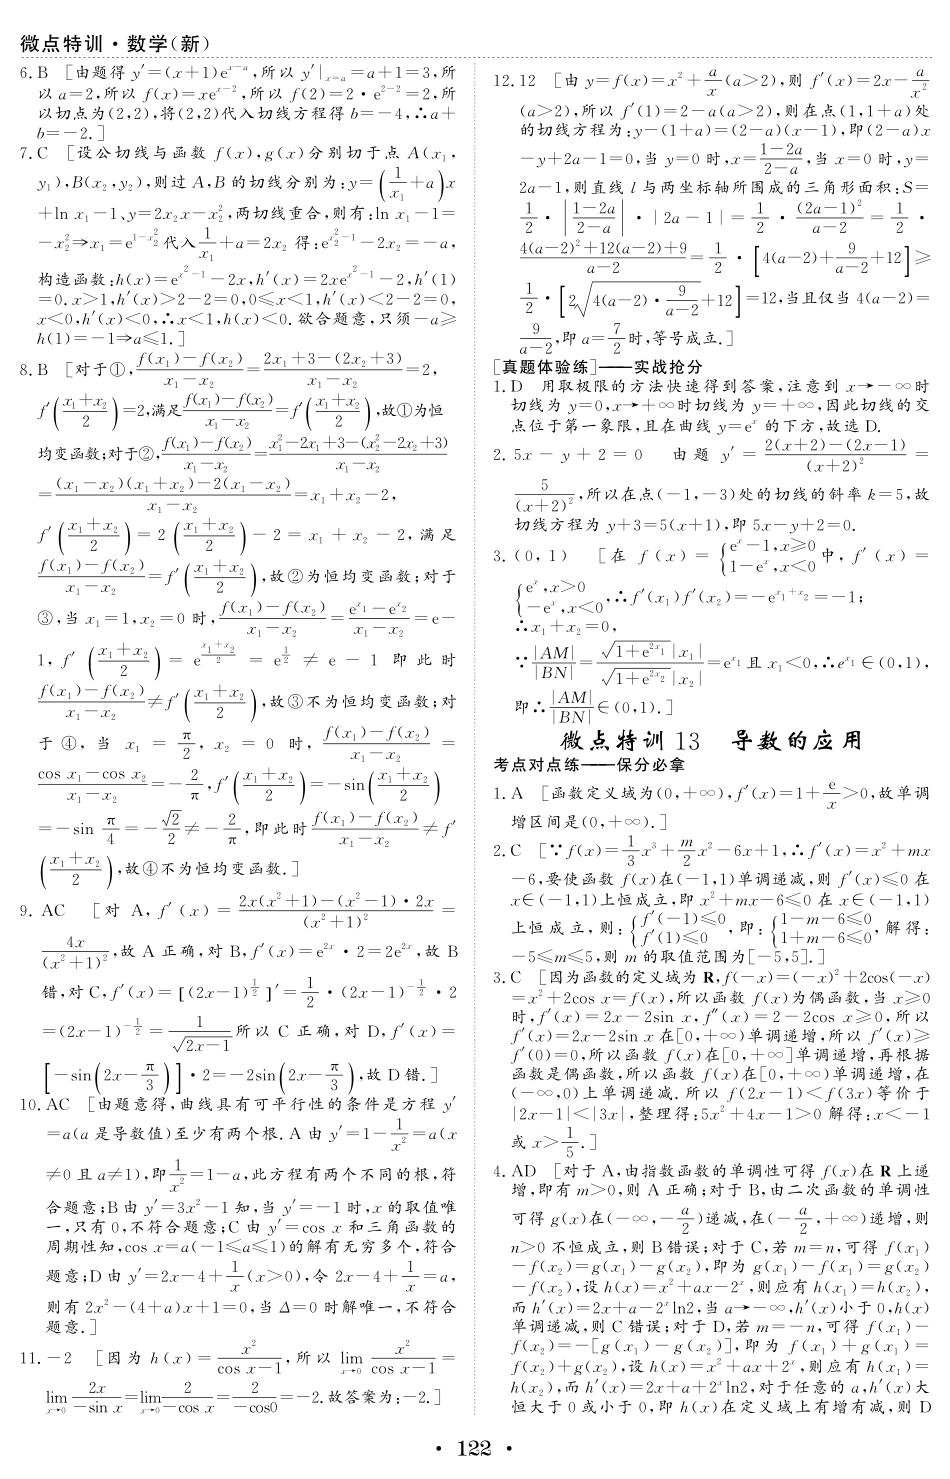 微点特训·数学(新)
6. B [由题得 y′=(x+1)e^{x-a},所以 y′|_{x=a}=a+1=3,所
以 a=2,所以 f(x)=xe^{x-2},所以 f(2)=2·e^{2-2}=2,所
以切点为(2,2),将(2,2)代入切线方程得 b=-4,∴a+
b=-2.]
7. C [设公切线与函数 f(x),g(x)分别切于点 A(x₁,
y₁),B(x₂,y₂),则过 A,B 的切线分别为:y=(1/x₁+a)x
+ln x₁-1、y=2x₂x-x₂²,两切线重合,则有:ln x₁-1=
-x₂²⇒x₁=e^{1-x₂²}代入1/x₁+a=2x₂ 得:e^{x₂²-1}-2x₂=-a,
构造函数:h(x)=e^{x²-1}-2x,h′(x)=2xe^{x²-1}-2,h′(1)
=0. x>1,h′(x)>2-2=0,0≤x<1,h′(x)<2-2=0,
x<0,h′(x)<0,∴x<1,h(x)<0. 欲合题意,只须-a≥
h(1)=-1⇒a≤1.]
8. B [对于①,(f(x₁)-f(x₂))/(x₁-x₂)=(2x₁+3-(2x₂+3))/(x₁-x₂)=2,
f′((x₁+x₂)/2)=2,满足(f(x₁)-f(x₂))/(x₁-x₂)=f′((x₁+x₂)/2),故①为恒
均变函数;对于②,(f(x₁)-f(x₂))/(x₁-x₂)=(x₁²-2x₁+3-(x₂²-2x₂+3))/(x₁-x₂)
=((x₁-x₂)(x₁+x₂)-2(x₁-x₂))/(x₁-x₂)=x₁+x₂-2,
f′((x₁+x₂)/2)=2((x₁+x₂)/2)-2=x₁+x₂-2,满足
(f(x₁)-f(x₂))/(x₁-x₂)=f′((x₁+x₂)/2),故②为恒均变函数;对于
③,当 x₁=1,x₂=0 时,(f(x₁)-f(x₂))/(x₁-x₂)=(e^{x₁}-e^{x₂})/(x₁-x₂)=e-
1,f′((x₁+x₂)/2)=e^{(x₁+x₂)/2}=e^{1/2}≠e-1 即此时
(f(x₁)-f(x₂))/(x₁-x₂)≠f′((x₁+x₂)/2),故③不为恒均变函数;对
于④,当 x₁=π/2,x₂=0 时,(f(x₁)-f(x₂))/(x₁-x₂)=
(cos x₁-cos x₂)/(x₁-x₂)=-2/π,f′((x₁+x₂)/2)=-sin((x₁+x₂)/2)
=-sin π/4=-√2/2≠-2/π,即此时(f(x₁)-f(x₂))/(x₁-x₂)≠f′
((x₁+x₂)/2),故④不为恒均变函数.]
9. AC [对 A,f′(x)=(2x(x²+1)-(x²-1)·2x)/(x²+1)²=
4x/(x²+1)²,故 A 正确,对 B,f′(x)=e^{2x}·2=2e^{2x},故 B
错,对 C,f′(x)=[(2x-1)^{1/2}]′=1/2·(2x-1)^{-1/2}·2
=(2x-1)^{-1/2}=1/√(2x-1) 所以 C 正确,对 D,f′(x)=
[-sin(2x-π/3)]·2=-2sin(2x-π/3),故 D 错.]
10. AC [由题意得,曲线具有可平行性的条件是方程 y′
=a(a 是导数值)至少有两个根. A 由 y′=1-1/x²=a(x
≠0 且 a≠1),即1/x²=1-a,此方程有两个不同的根,符
合题意;B 由 y′=3x²-1 知,当 y′=-1 时,x 的取值唯
一,只有 0,不符合题意;C 由 y′=cos x 和三角函数的
周期性知,cos x=a(-1≤a≤1)的解有无穷多个,符合
题意;D 由 y′=2x-4+1/x(x>0),令 2x-4+1/x=a,
则有 2x²-(4+a)x+1=0,当 Δ=0 时解唯一,不符合
题意.]
11. -2 [因为 h(x)=x²/(cos x-1),所以 lim_{x→0} x²/(cos x-1)=
lim_{x→0} 2x/(-sin x)=lim_{x→0} 2/(-cos x)=2/(-cos0)=-2. 故答案为:-2.]
12. 12 [由 y=f(x)=x²+a/x(a>2),则 f′(x)=2x-a/x²
(a>2),所以 f′(1)=2-a(a>2),则在点(1,1+a)处
的切线方程为:y-(1+a)=(2-a)(x-1),即(2-a)x
-y+2a-1=0,当 y=0 时,x=(1-2a)/(2-a),当 x=0 时,y=
2a-1,则直线 l 与两坐标轴所围成的三角形面积:S=
1/2·|(1-2a)/(2-a)|·|2a-1|=1/2·(2a-1)²/(a-2)=1/2·
(4(a-2)²+12(a-2)+9)/(a-2)=1/2·[4(a-2)+9/(a-2)+12]≥
1/2·[2√(4(a-2)·9/(a-2))+12]=12,当且仅当 4(a-2)=
9/(a-2),即 a=7/2时,等号成立.]
[真题体验练]——实战抢分
1. D 用取极限的方法快速得到答案,注意到 x→-∞时
切线为 y=0,x→+∞时切线为 y=+∞,因此切线的交
点位于第一象限,且在曲线 y=e^x 的下方,故选 D.
2. 5x-y+2=0 由题 y′=(2(x+2)-(2x-1))/(x+2)²=
5/(x+2)²,所以在点(-1,-3)处的切线的斜率 k=5,故
切线方程为 y+3=5(x+1),即 5x-y+2=0.
3. (0,1) [在 f(x)={e^x-1,x≥0 1-e^x,x<0 中,f′(x)=
{e^x,x>0 -e^x,x<0,∴f′(x₁)f′(x₂)=-e^{x₁+x₂}=-1;
∴x₁+x₂=0,
∵|AM|/|BN|=√(1+e^{2x₁})|x₁|/√(1+e^{2x₂})|x₂|=e^{x₁}且 x₁<0,∴e^{x₁}∈(0,1),
即∴|AM|/|BN|∈(0,1).]
微点特训 13 导数的应用
考点对点练——保分必拿
1. A [函数定义域为(0,+∞),f′(x)=1+e/x>0,故单调
增区间是(0,+∞).]
2. C [∵f(x)=1/3x³+m/2x²-6x+1,∴f′(x)=x²+mx
-6,要使函数 f(x)在(-1,1)单调递减,则 f′(x)≤0 在
x∈(-1,1)上恒成立,即 x²+mx-6≤0 在 x∈(-1,1)
上恒成立,则:{f′(-1)≤0 f′(1)≤0,即:{1-m-6≤0 1+m-6≤0,解得:
-5≤m≤5,则 m 的取值范围为[-5,5].]
3. C [因为函数的定义域为 R,f(-x)=(-x)²+2cos(-x)
=x²+2cos x=f(x),所以函数 f(x)为偶函数,当 x≥0
时,f′(x)=2x-2sin x,f″(x)=2-2cos x≥0,所以
f′(x)=2x-2sin x 在[0,+∞)单调递增,所以 f′(x)≥
f′(0)=0,所以函数 f(x)在[0,+∞]单调递增,再根据
函数是偶函数,所以函数 f(x)在[0,+∞)单调递增,在
(-∞,0)上单调递减. 所以 f(2x-1)<f(3x)等价于
|2x-1|<|3x|,整理得:5x²+4x-1>0 解得:x<-1
或 x>1/5.]
4. AD [对于 A,由指数函数的单调性可得 f(x)在 R 上递
增,即有 m>0,则 A 正确;对于 B,由二次函数的单调性
可得 g(x)在(-∞,-a/2)递减,在(-a/2,+∞)递增,则
n>0 不恒成立,则 B 错误;对于 C,若 m=n,可得 f(x₁)
-f(x₂)=g(x₁)-g(x₂),即为 g(x₁)-f(x₁)=g(x₂)
-f(x₂),设 h(x)=x²+ax-2^x,则应有 h(x₁)=h(x₂),
而 h′(x)=2x+a-2^x ln2,当 a→-∞,h′(x)小于 0,h(x)
单调递减,则 C 错误;对于 D,若 m=-n,可得 f(x₁)-
f(x₂)=-[g(x₁)-g(x₂)],即为 f(x₁)+g(x₁)=
f(x₂)+g(x₂),设 h(x)=x²+ax+2^x,则应有 h(x₁)=
h(x₂),而 h′(x)=2x+a+2^x ln2,对于任意的 a,h′(x)大
恒大于 0 或小于 0,即 h(x)在定义域上有增有减,则 D
· 122 ·